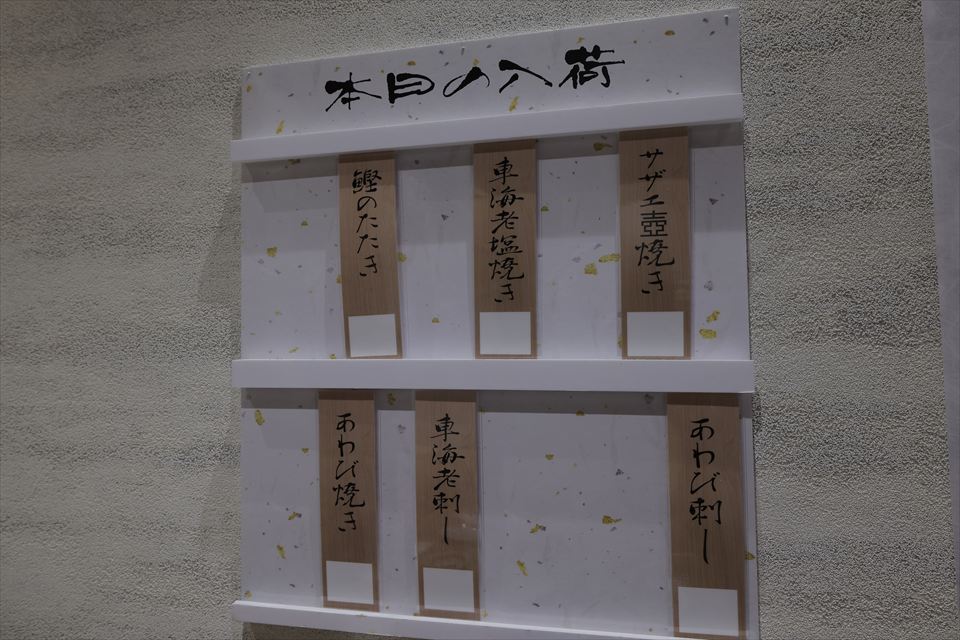 本日の入荷
サザエ壺焼き
車海老塩焼き
鰹のたたき
あわび刺し
車海老刺し
あわび焼き